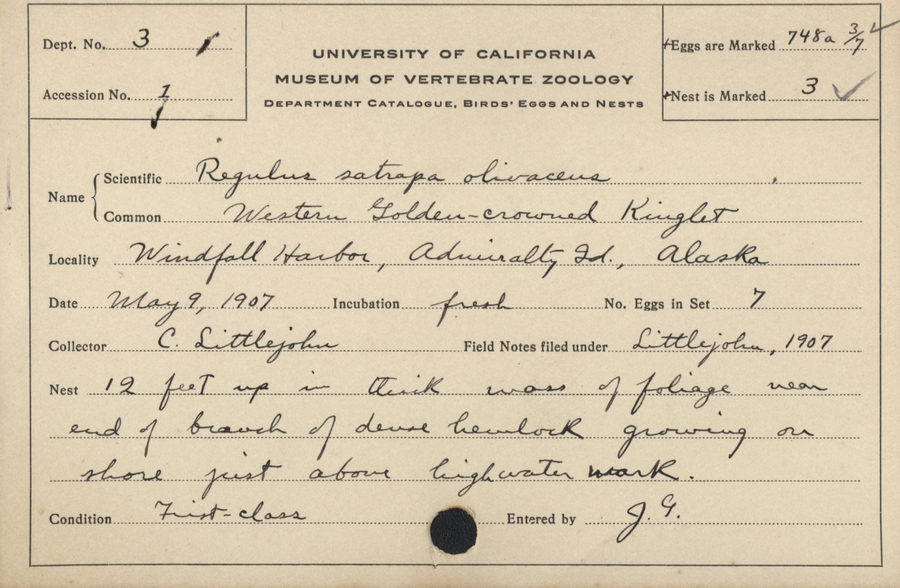 Dept. No. 3
UNIVERSITY OF CALIFORNIA
MUSEUM OF VERTEBRATE ZOOLOGY
DEPARTMENT CATALOGUE, BIRDS' EGGS AND NESTS
Accession No. 1
Eggs are Marked 748a 3/7
Nest is Marked 3
Name
Scientific Regulus satrapa olivaceus
Common Western Golden-crowned Kinglet
Locality Windfall Harbor, Admiralty Id., Alaska
Date May 9, 1907 Incubation fresh No. Eggs in Set 7
Collector C. Littlejohn Field Notes filed under Littlejohn, 1907
Nest 12 feet up in thick mass of foliage near
end of branch of dense hemlock growing on
shore just above highwater mark.
Condition First-class Entered by J. G.